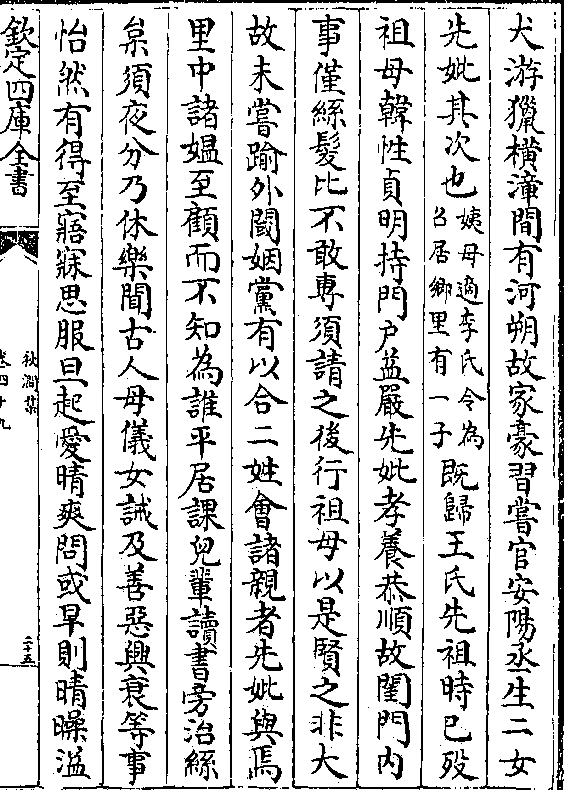 犬游獵橫漳間有河朔故家豪習嘗官安陽丞生二女
先妣其次也姨母適李氏今為
名居鄉里有一子既歸王氏先祖時已歿
祖母韓性貞明持門户益嚴先妣孝養恭順故閨門内
事僅絲髮比不敢專須請之後行祖母以是賢之非大
故未嘗踰外閾姻黨有以合二姓會諸親者先妣與焉
里中諸媼至顧而不知為誰平居課兒輩讀書旁治絲
枲須夜分乃休樂聞古人母儀女誡及善惡興衰等事
怡然有得至寤寐思服旦起愛晴爽問或早則晴曛溢
欽定四庫全書
秋澗集
卷四十九
二十五